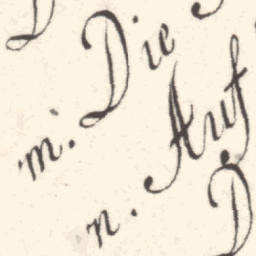 m. Die
n. Auf